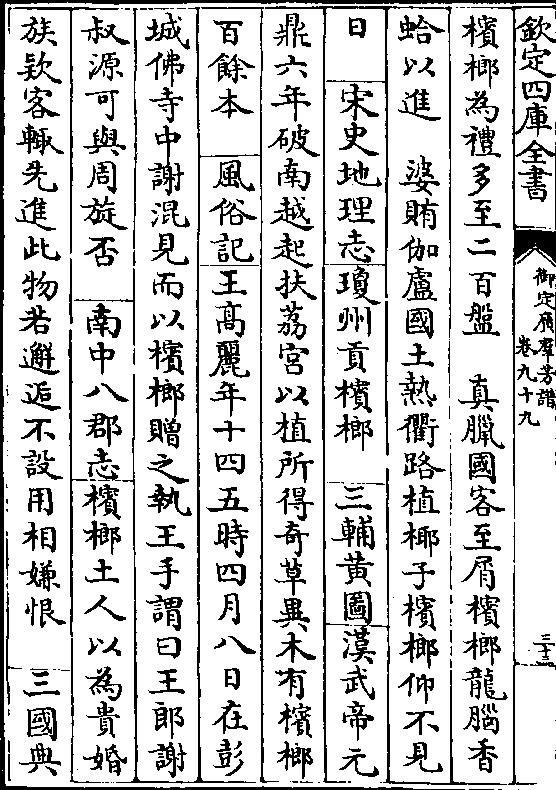 欽定四庫全書
御定廣羣芳譜
卷九十九
三十三
檳榔為禮多至二百盤　真臘國客至屑檳榔龍腦香
蛤以進　婆賄伽盧國土熱衢路植椰子檳榔仰不見
日　宋史地理志瓊州貢檳榔　三輔黃圖漢武帝元
鼎六年破南越起扶荔宮以植所得奇草異木有檳榔
百餘本　風俗記王高麗年十四五時四月八日在彭
城佛寺中謝混見而以檳榔贈之執王手謂曰王郎謝
叔源可與周旋否　南中八郡志檳榔土人以為貴婚
族欵客輙先進此物若邂逅不設用相嫌恨　三國典